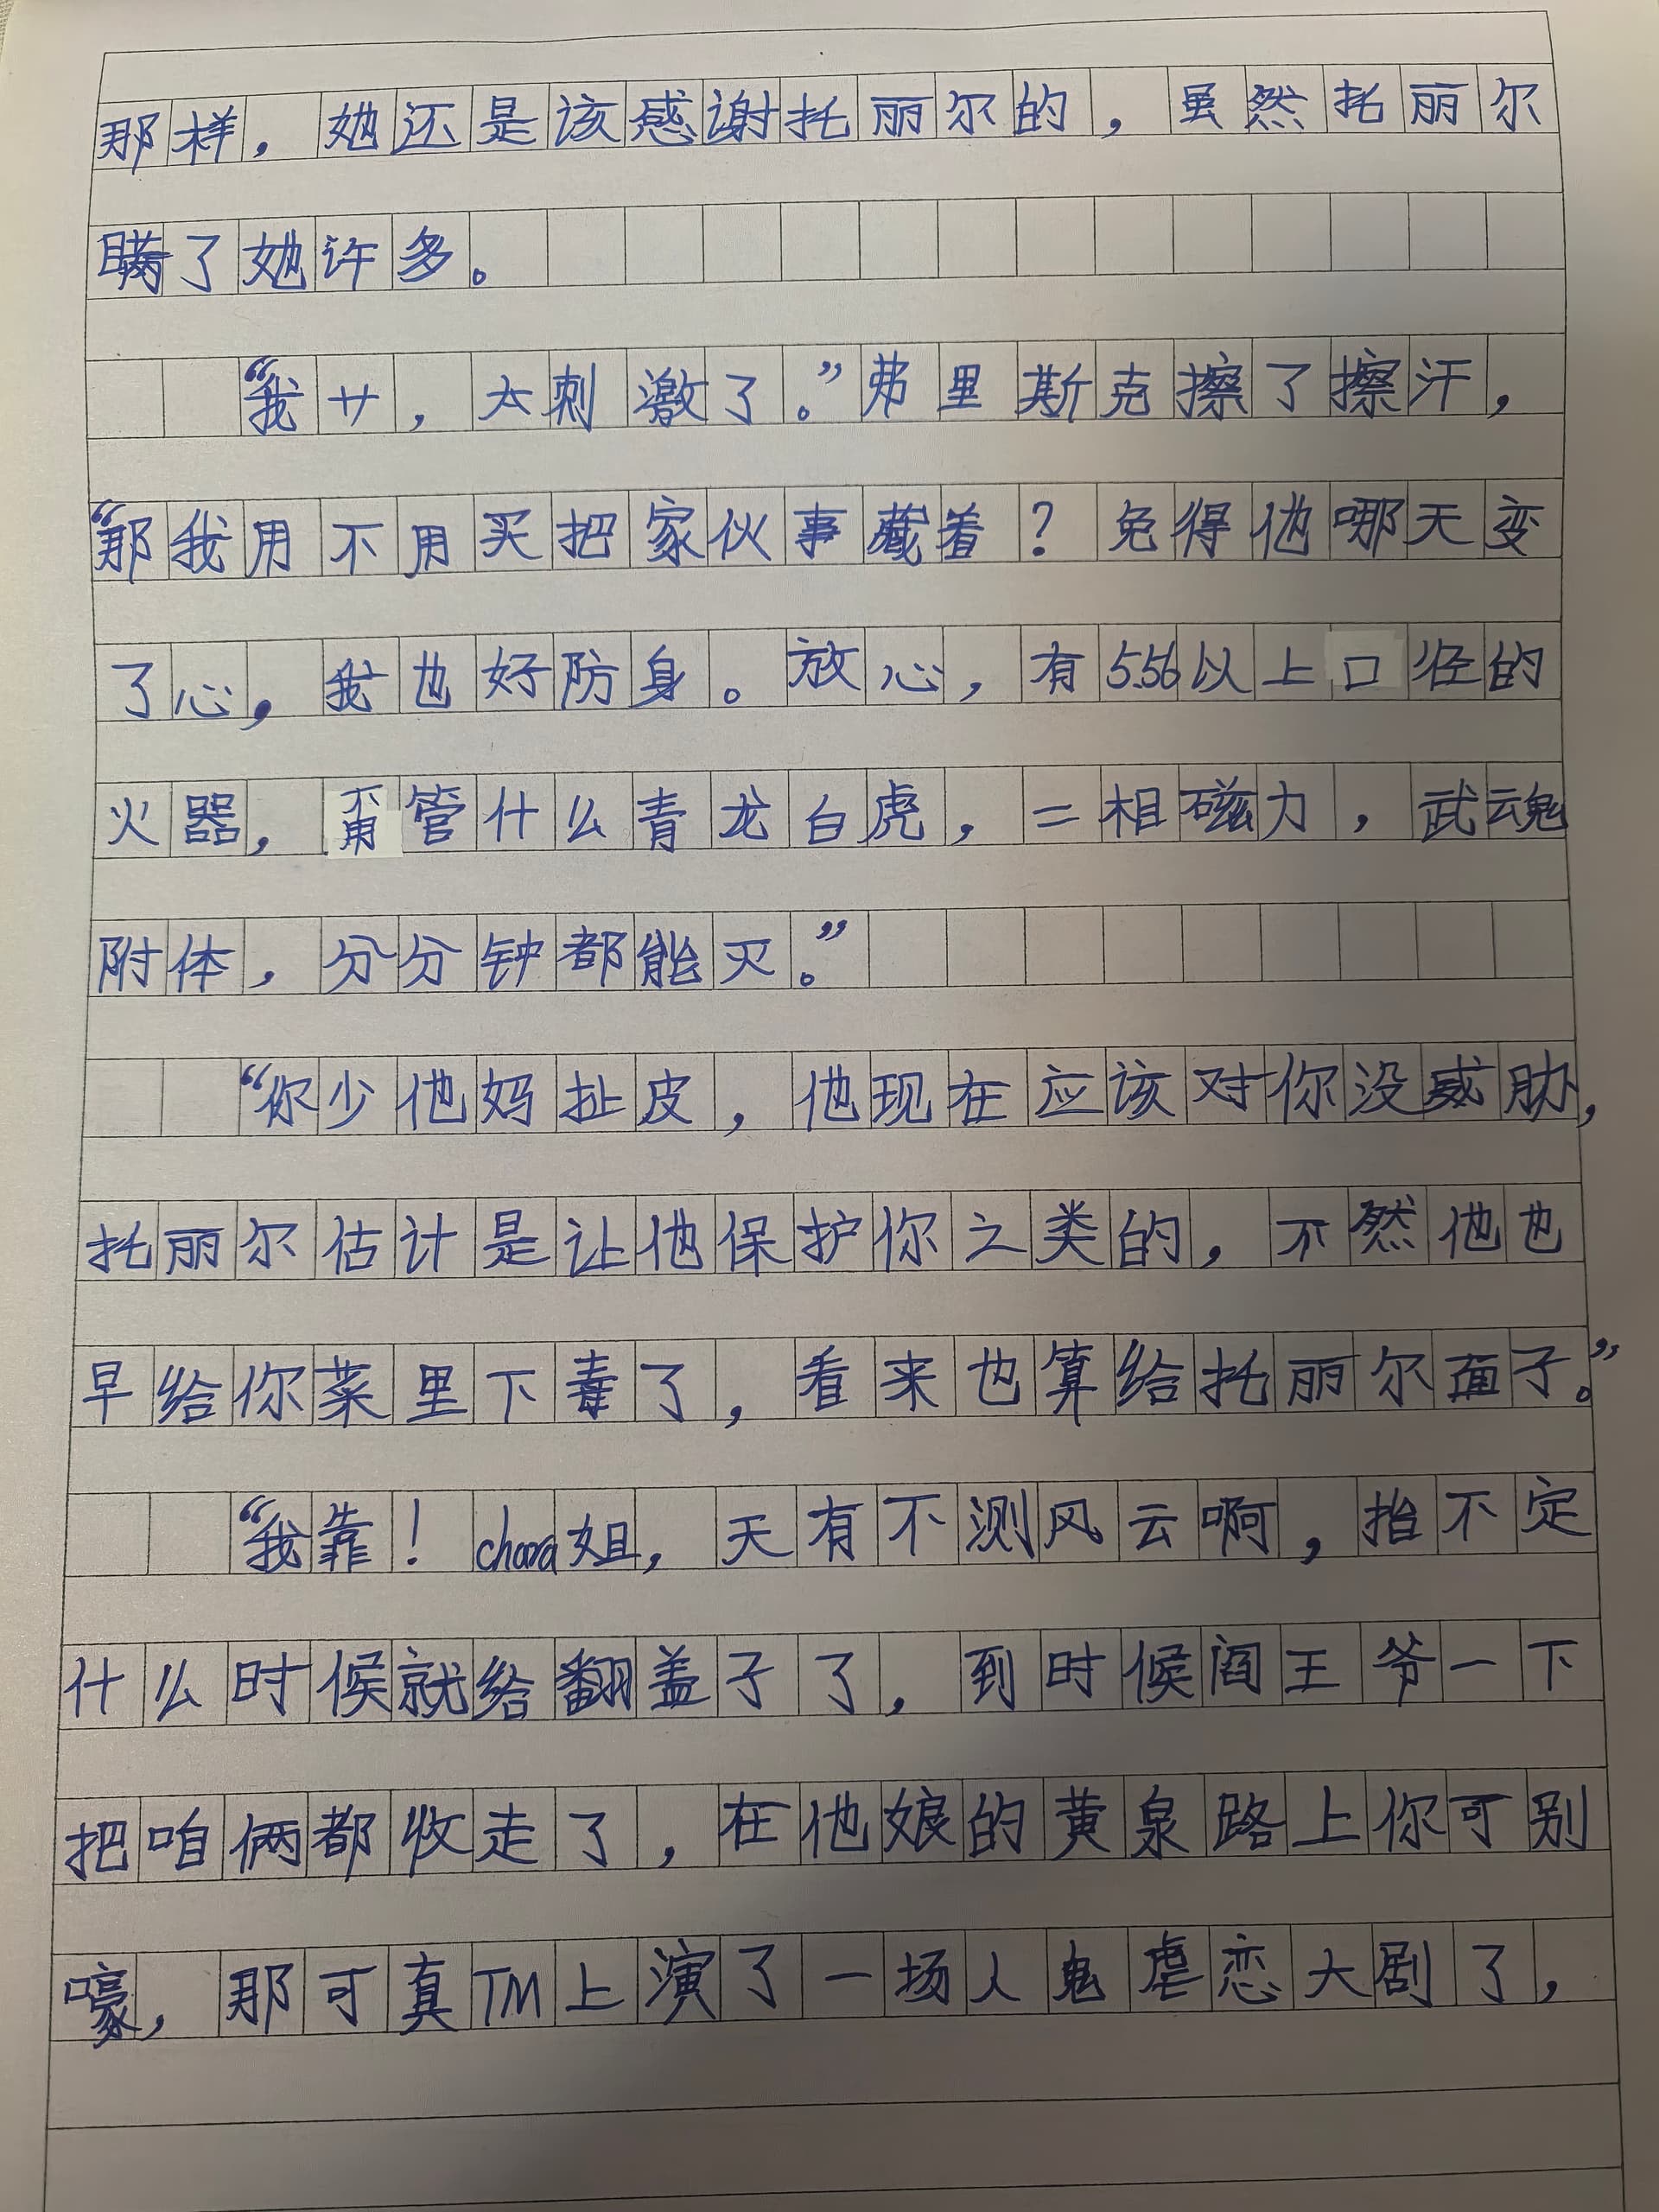 那样，她还是该感谢托丽尔的，虽然托丽尔
瞒了她许多。
“我艹，太刺激了。”弗里斯克擦了擦汗，
“那我用不用买把家伙事藏着？免得他哪天变
了心，我也好防身。放心，有5.56以上口径的
火器，甭管什么青龙白虎，二相磁力，武魂
附体，分分钟都能灭。”
“你少他妈扯皮，他现在应该对你没威胁，
托丽尔估计是让他保护你之类的，不然他也
早给你菜里下毒了，看来也算给托丽尔面子。”
“我靠！chara姐，天有不测风云啊，抬不定
什么时候就给翻盖子了，到时候阎王爷一下
把咱俩都收走了，在他娘的黄泉路上你可别
嚎，那可真TM上演了一场人鬼虐恋大剧了，